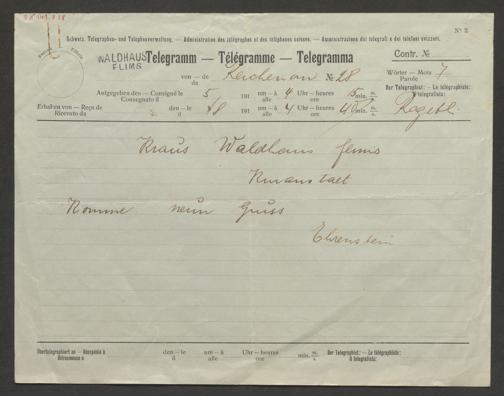 No 2
Schweiz. Telegraphen- und Telephonverwaltung. — Administration des télégraphes et des téléphones suisses. — Amministrazione dei telegrafi e dei telefoni svizzeri.
WALDHAUS
FLIMS
Telegramm — Télégramme — Telegramma
Contr. №
von — de
da
Reichenau № 28
Wörter — Mots 7
Parole
Aufgegeben den — Consigné le
Consegnato il
5 191 um — à
alle
4 Uhr — heures
ore
15 min. m.
s.
Der Telegraphist: — Le télégraphiste:
Il telegrafista:
Erhalten von — Reçu de
Ricevuto da
den — le
il
191 um — à
alle
4 Uhr — heures
ore
40 min. m.
s.
Kraus Waldhaus flims
Kuranstaet
Komme neun Gruss
Ehrenstein
Übertelegraphiert an — Réexpédié à
Ritrasmesso a
den — le
il
um — à
alle
Uhr — heures
ore
min. m.
s.
Der Telegraphist: — Le télégraphiste:
Il telegrafista: